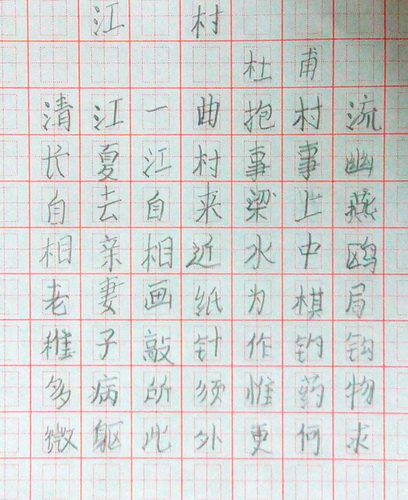 江村
杜甫
清江一曲抱村流
长夏江村事事幽
自去自来梁上燕
相亲相近水中鸥
老妻画纸为棋局
稚子敲针作钓钩
多病所须惟药物
微躯此外更何求